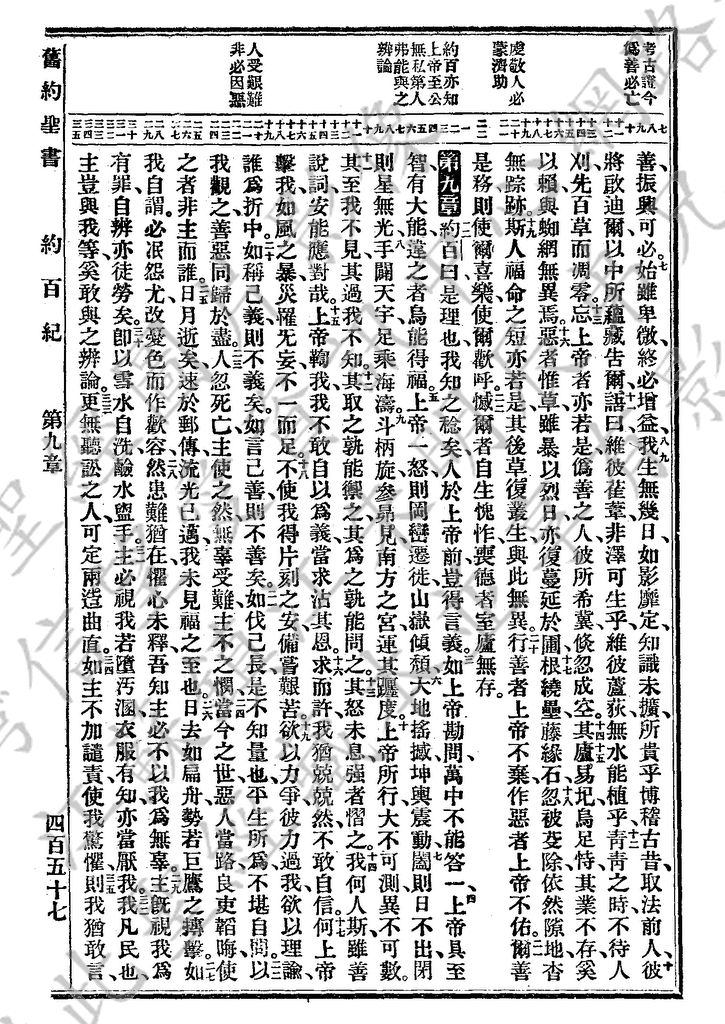 考古證今
僞善必亡
虔敬人必
蒙濟助
約百亦知
上帝至公
無私第人
弗能與之
辨論
人受艱難
非必因惡
善振興可必始雖卑微終必增益我生無幾日如影靡定知識未擴所貴乎博稽古昔取法前人彼
將啟迪爾以中所蘊藏告爾語曰維彼萑葦非澤可生乎維彼蘆荻無水能植乎靑靑之時不待人
刈先百草而凋零忘上帝者亦若是僞善之人彼所希冀倏忽成空其廬易圮烏足恃其業不存奚
以賴與蜘網無異焉惡者惟草雖暴以烈日亦復蔓延於圃根繞壘藤緣石忽被芟除依然隙地杳
無踪跡斯人福命之短亦若是其後草復叢生與此無異行善者上帝不棄作惡者上帝不佑爾善
是務則使爾喜樂使爾歡呼憾爾者自生愧怍喪德者室廬無存
第九章約百曰是理也我知之稔矣人於上帝前豈得言義如上帝勘問萬中不能答一上帝具至
智有大能違之者烏能得福上帝一怒則岡巒遷徙山嶽傾頹大地搖撼坤輿震動闔則日不出閉
則星無光手闢天宇足乘海濤斗柄旋參昴見南方之宮運其躔度上帝所行大不可測異不可數
其至我不見其過我不知其取之孰能禦之其爲之孰能問之其怒未息强者慴之我何人斯雖善
說詞安能應對哉上帝鞫我我不敢自以爲義當求沾其恩求而許我猶兢兢然不敢自信何上帝
擊我如風之暴災罹无妄不一而足不使我得片刻之安備嘗艱苦欲以力爭彼力過我欲以理論
誰爲折中如稱己義則不義矣如言己善則不善矣如伐己長是不知量也平生所爲不堪自問以
我觀之善惡同歸於盡人忽死亡主使之然無辜受難主不之憫當今之世惡人當路良吏韜晦使
之者非主而誰日月逝矣速於郵傳流光已邁我未見福之至也日去如扁舟勢若巨鷹之搏擊如
我自謂必泯怨尤改憂色而作歡容然患難猶在懼心未釋吾知主必不以我爲無辜主旣視我爲
有罪自辨亦徒勞矣卽以雪水自洗鹼水盥手主必視我若墮汚溷衣服有知亦當厭我我凡民也
主豈與我等奚敢與之辨論更無聽訟之人可定兩造曲直如主不加譴責使我驚懼則我猶敢言
舊約聖書　約百紀　第九章　四百五十七